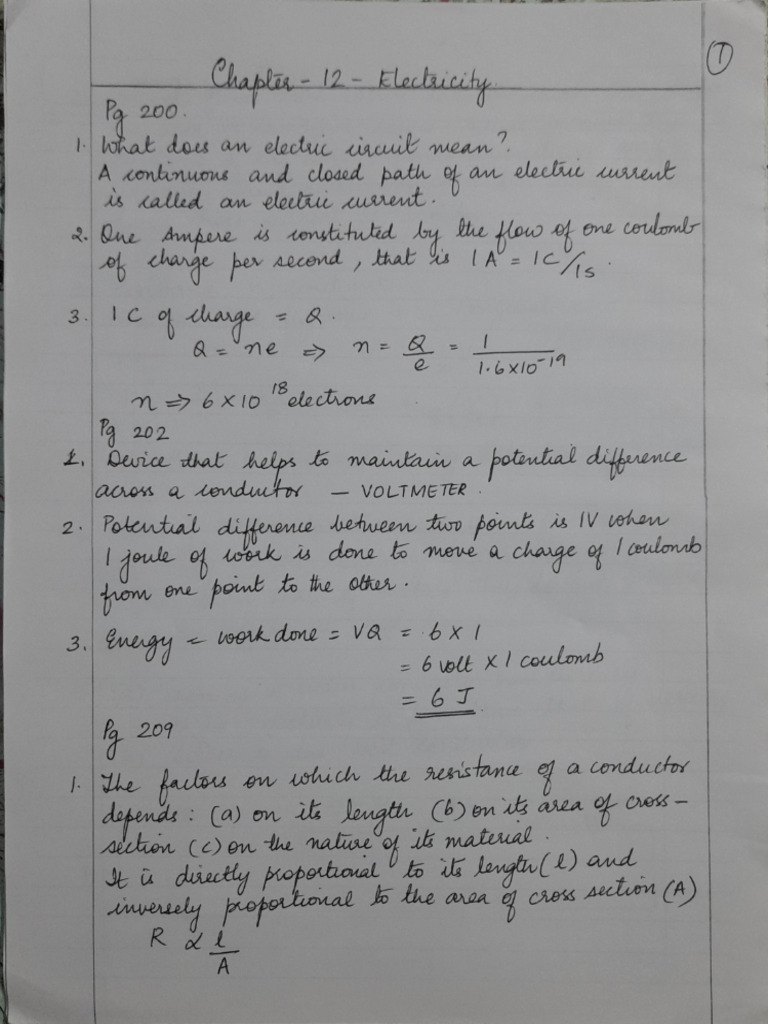 1
Chapter - 12 - Electricity.
Pg 200.
1. What does an electric circuit mean?
A continuous and closed path of an electric current
is called an electric current.
2. One Ampere is constituted by the flow of one coulomb
of charge per second, that is 1 A = 1C/1s.
3. 1 C of charge = Q.
Q = ne ⇒ n = Q/e = 1/1.6×10⁻¹⁹
n ⇒ 6 × 10¹⁸ electrons
Pg 202
1. Device that helps to maintain a potential difference
across a conductor — VOLTMETER.
2. Potential difference between two points is 1V when
1 joule of work is done to move a charge of 1 coulomb
from one point to the other.
3. Energy = work done = VQ = 6 × 1
= 6 volt × 1 coulomb
= 6 J
Pg 209
1. The factors on which the resistance of a conductor
depends: (a) on its length (b) on its area of cross-
section (c) on the nature of its material.
It is directly proportional to its length (l) and
inversely proportional to the area of cross section (A)
R ∝ l/A